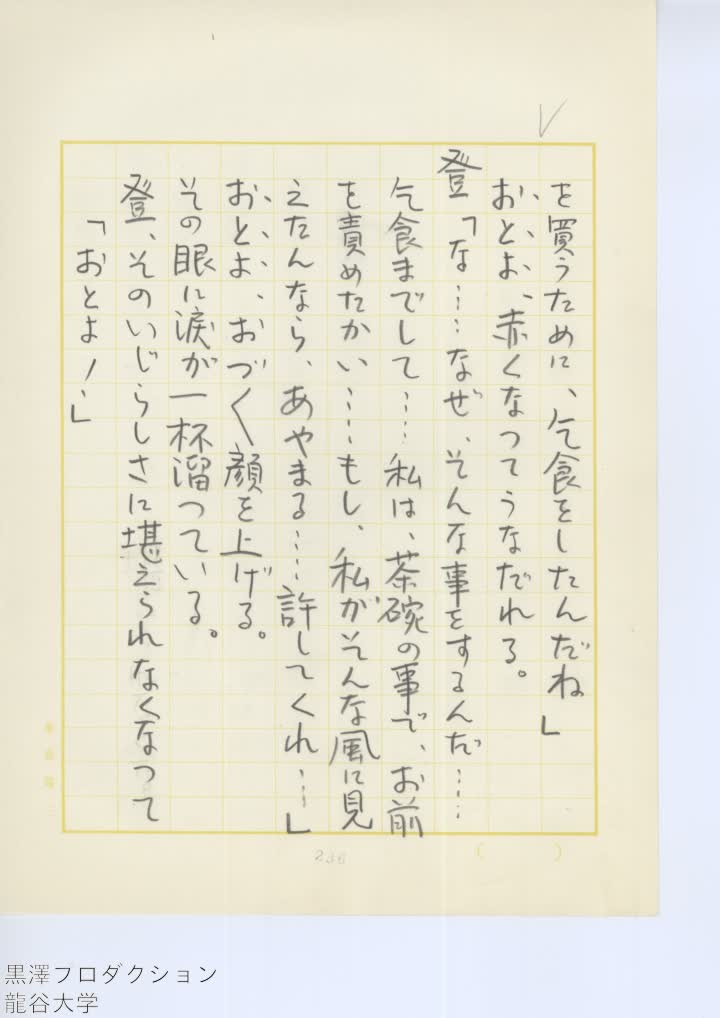 を買うために、乞食をしたんだね」
おとよ、赤くなつてうなだれる。
登「な……なぜ、そんな事をするんだ……
乞食までして……私は、茶碗の事で、お前
を責めたかい……もし、私がそんな風に見
えたんなら、あやまる……許してくれ…」
おとよ、おづ〱顔を上げる。
その眼に涙が一杯溜つている。
登、そのいじらしさに堪えられなくなつて
「おとよ！」
236
黒澤プロダクション
龍谷大学